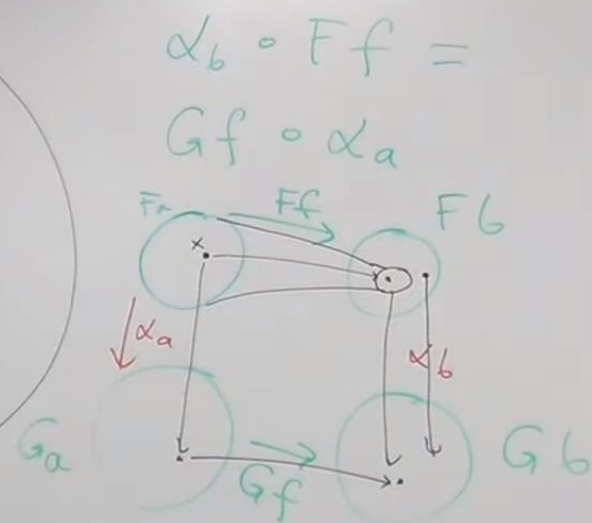 α_b ∘ Ff =
Gf ∘ α_a
Fa Ff Fb
x
α_a α_b
Ga Gf Gb